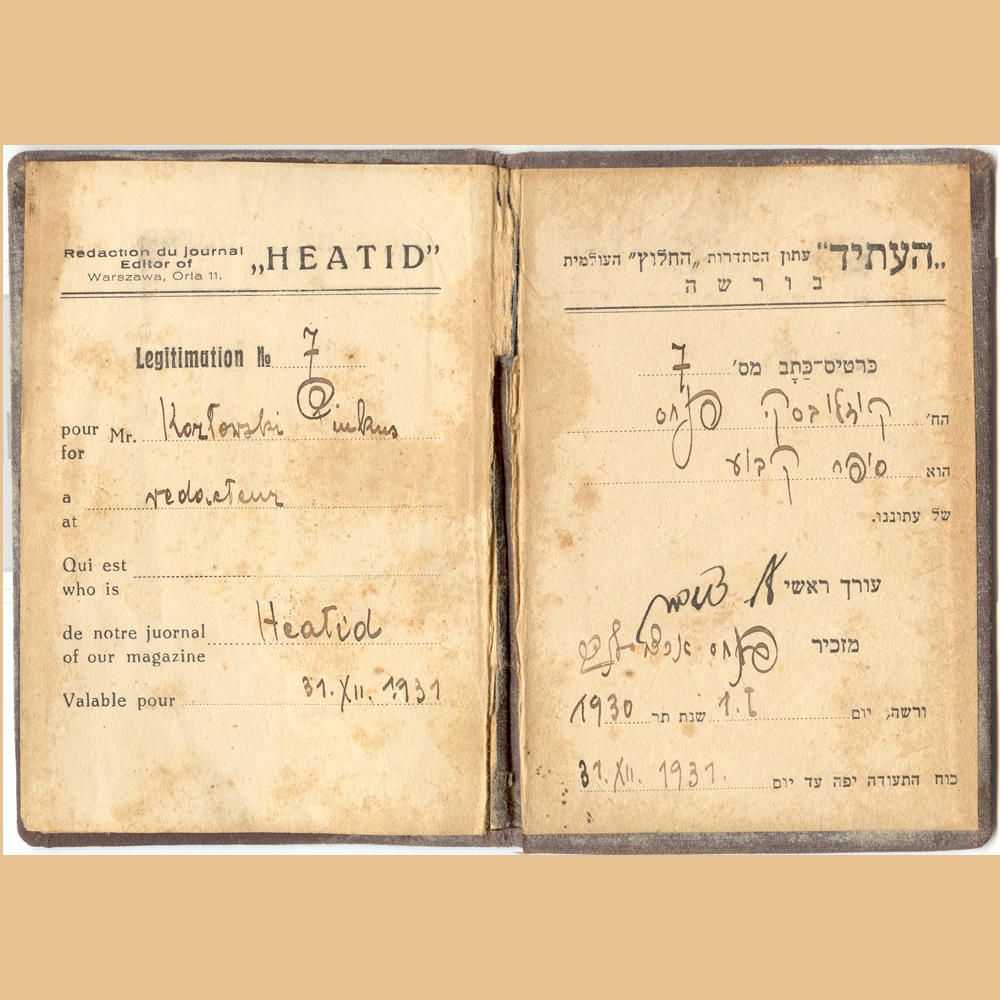 Redaction du journal
Editor of
Warszawa, Orla 11.
„HEATID”
Legitimation № 7
pour Mr. Kozłowski Pinkus
for
a redacteur
at
Qui est
who is
de notre juornal Heatid
of our magazine
Valable pour 31. XII. 1931
„העתיד“ עתון הסתדרות „החלוץ” העולמית
בורשה
כרטיס-כַּתָב מס׳ 7
הח׳ קוזלובסקי פנחס
הוא סופר קבוע
של עתוננו.
עורך ראשי
מזכיר פנחס
ורשה, יום 1.I שנת תר 1930
כוח התעודה יפה עד יום 31. XII. 1931.